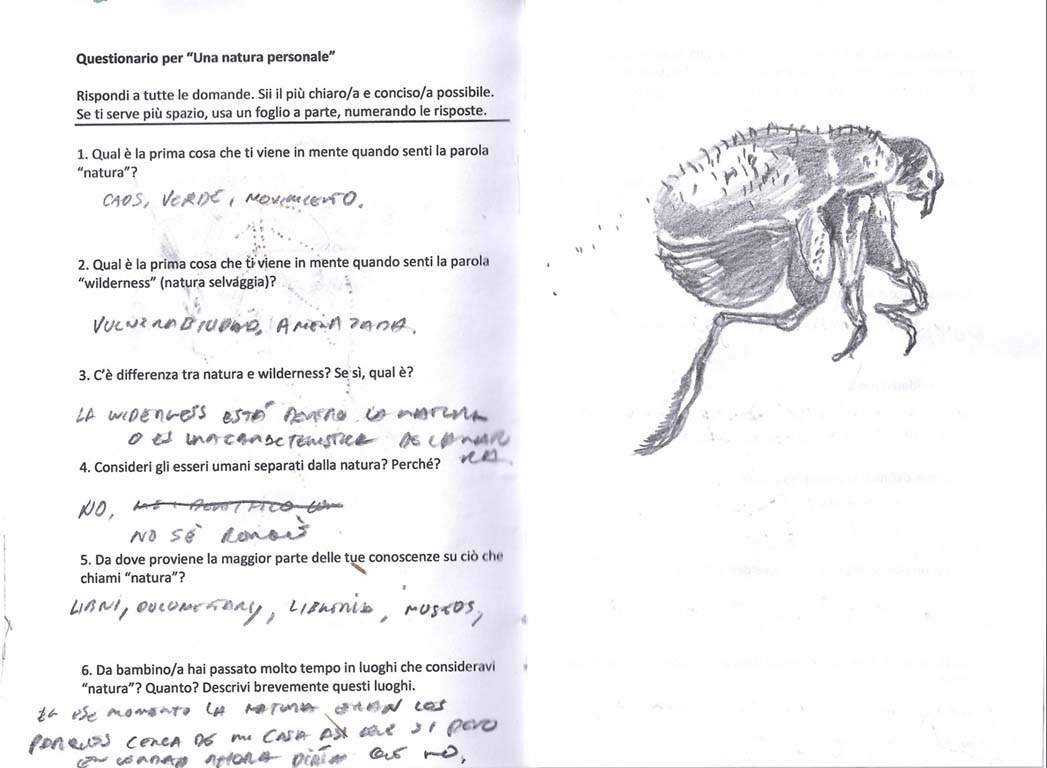 Questionario per “Una natura personale”
Rispondi a tutte le domande. Sii il più chiaro/a e conciso/a possibile.
Se ti serve più spazio, usa un foglio a parte, numerando le risposte.
1. Qual è la prima cosa che ti viene in mente quando senti la parola
“natura”?
CAOS, VERDE, MOVIMIENTO.
2. Qual è la prima cosa che ti viene in mente quando senti la parola
“wilderness” (natura selvaggia)?
VULNERABILIDAD, AMENAZADA.
3. C’è differenza tra natura e wilderness? Se sì, qual è?
LA WIDERNESS ESTÁ DENTRO LA NATURA
O ES UNA CARACTERISTICA DE LA NATU
RA.
4. Consideri gli esseri umani separati dalla natura? Perché?
NO,
NO SÉ
5. Da dove proviene la maggior parte delle tue conoscenze su ciò che
chiami “natura”?
LIBRI, DOCUMENTARY, , MUSEOS,
6. Da bambino/a hai passato molto tempo in luoghi che consideravi
“natura”? Quanto? Descrivi brevemente questi luoghi.
EN ESE MOMENTO LA NATURA ERAN LOS
PARQUES CERCA DE MI CASA ASI QUE SI PERO
EN VERDAD AHORA DIRÍA QUE NO,